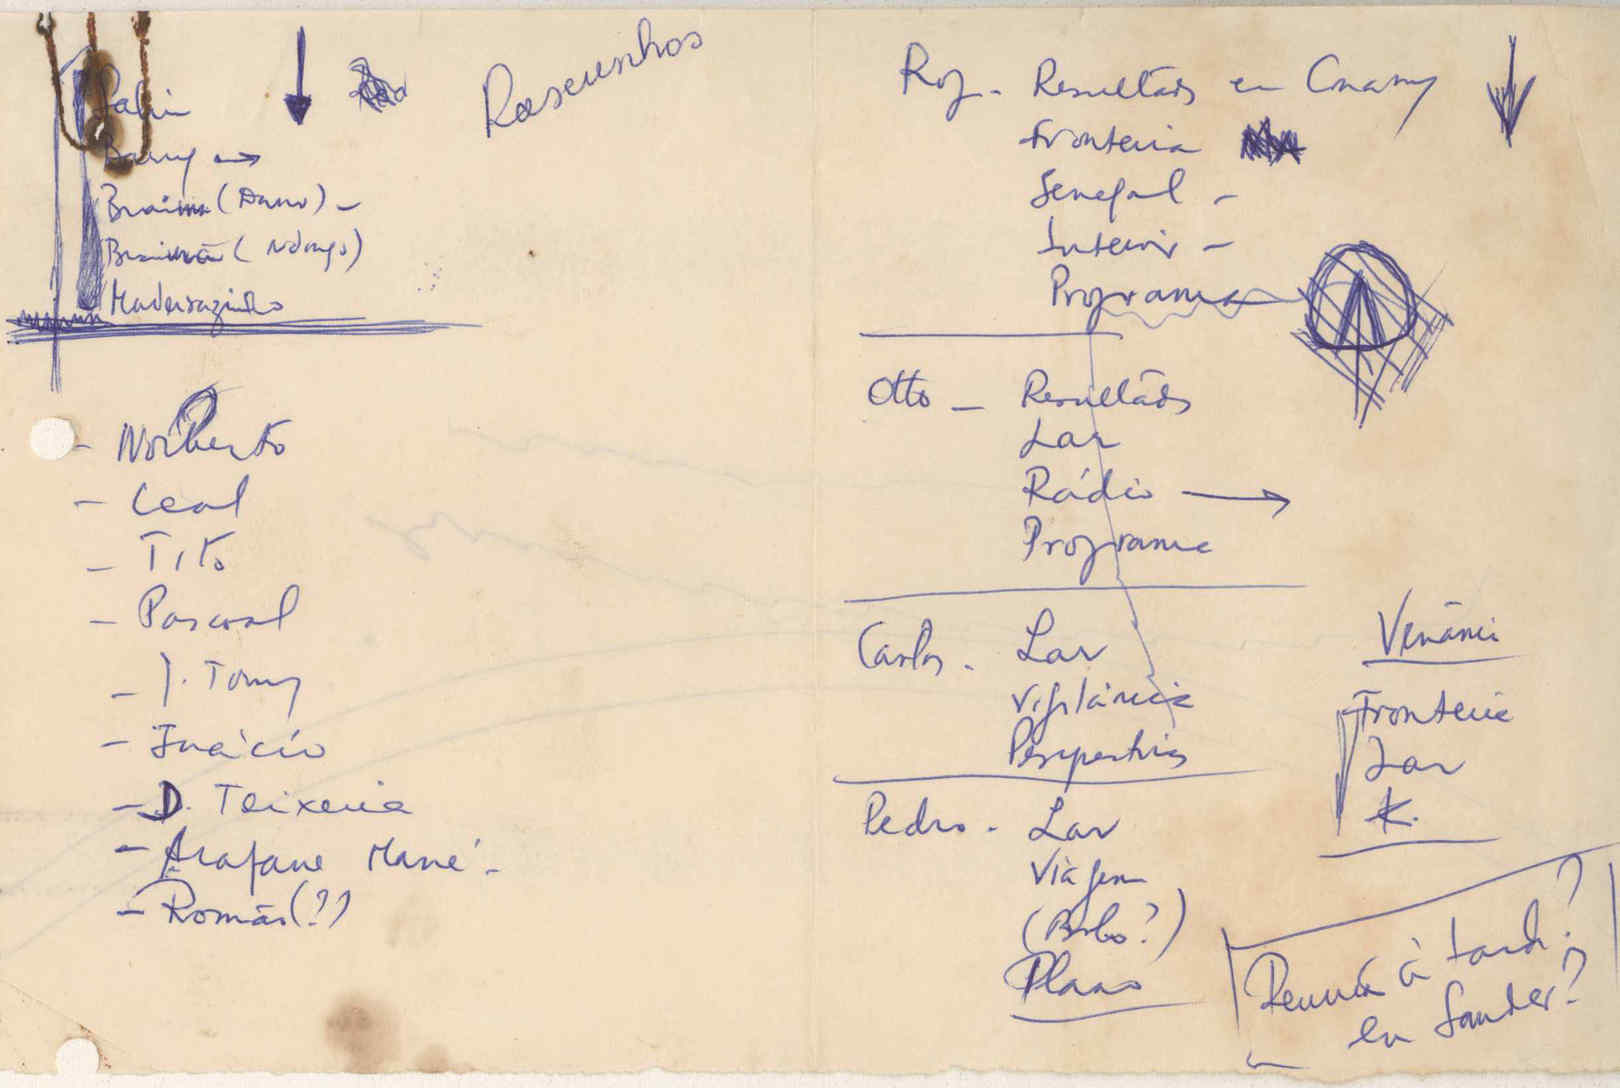 Rascunhos
Barry →
Braima (Dano) -
Braima (Ndongo)
- Norberto
- Leal
- Tito
- Pascoal
- J. Tomy
- Inácio
- D. Teixeira
- Arafane Mané -
- Romão (??)
Resultados en Conakry
Fronteira
Senegal -
Interior -
Programa
Otto - Resultados
Lar
Rádio →
Programa
Carlos - Lar
Vigilância
Perspectivas
Pedro - Lar
Viagem
(Bobo?)
Plano
Venâncio
Fronteira
Lar
K.
Reunião à tarde?
en Sander?